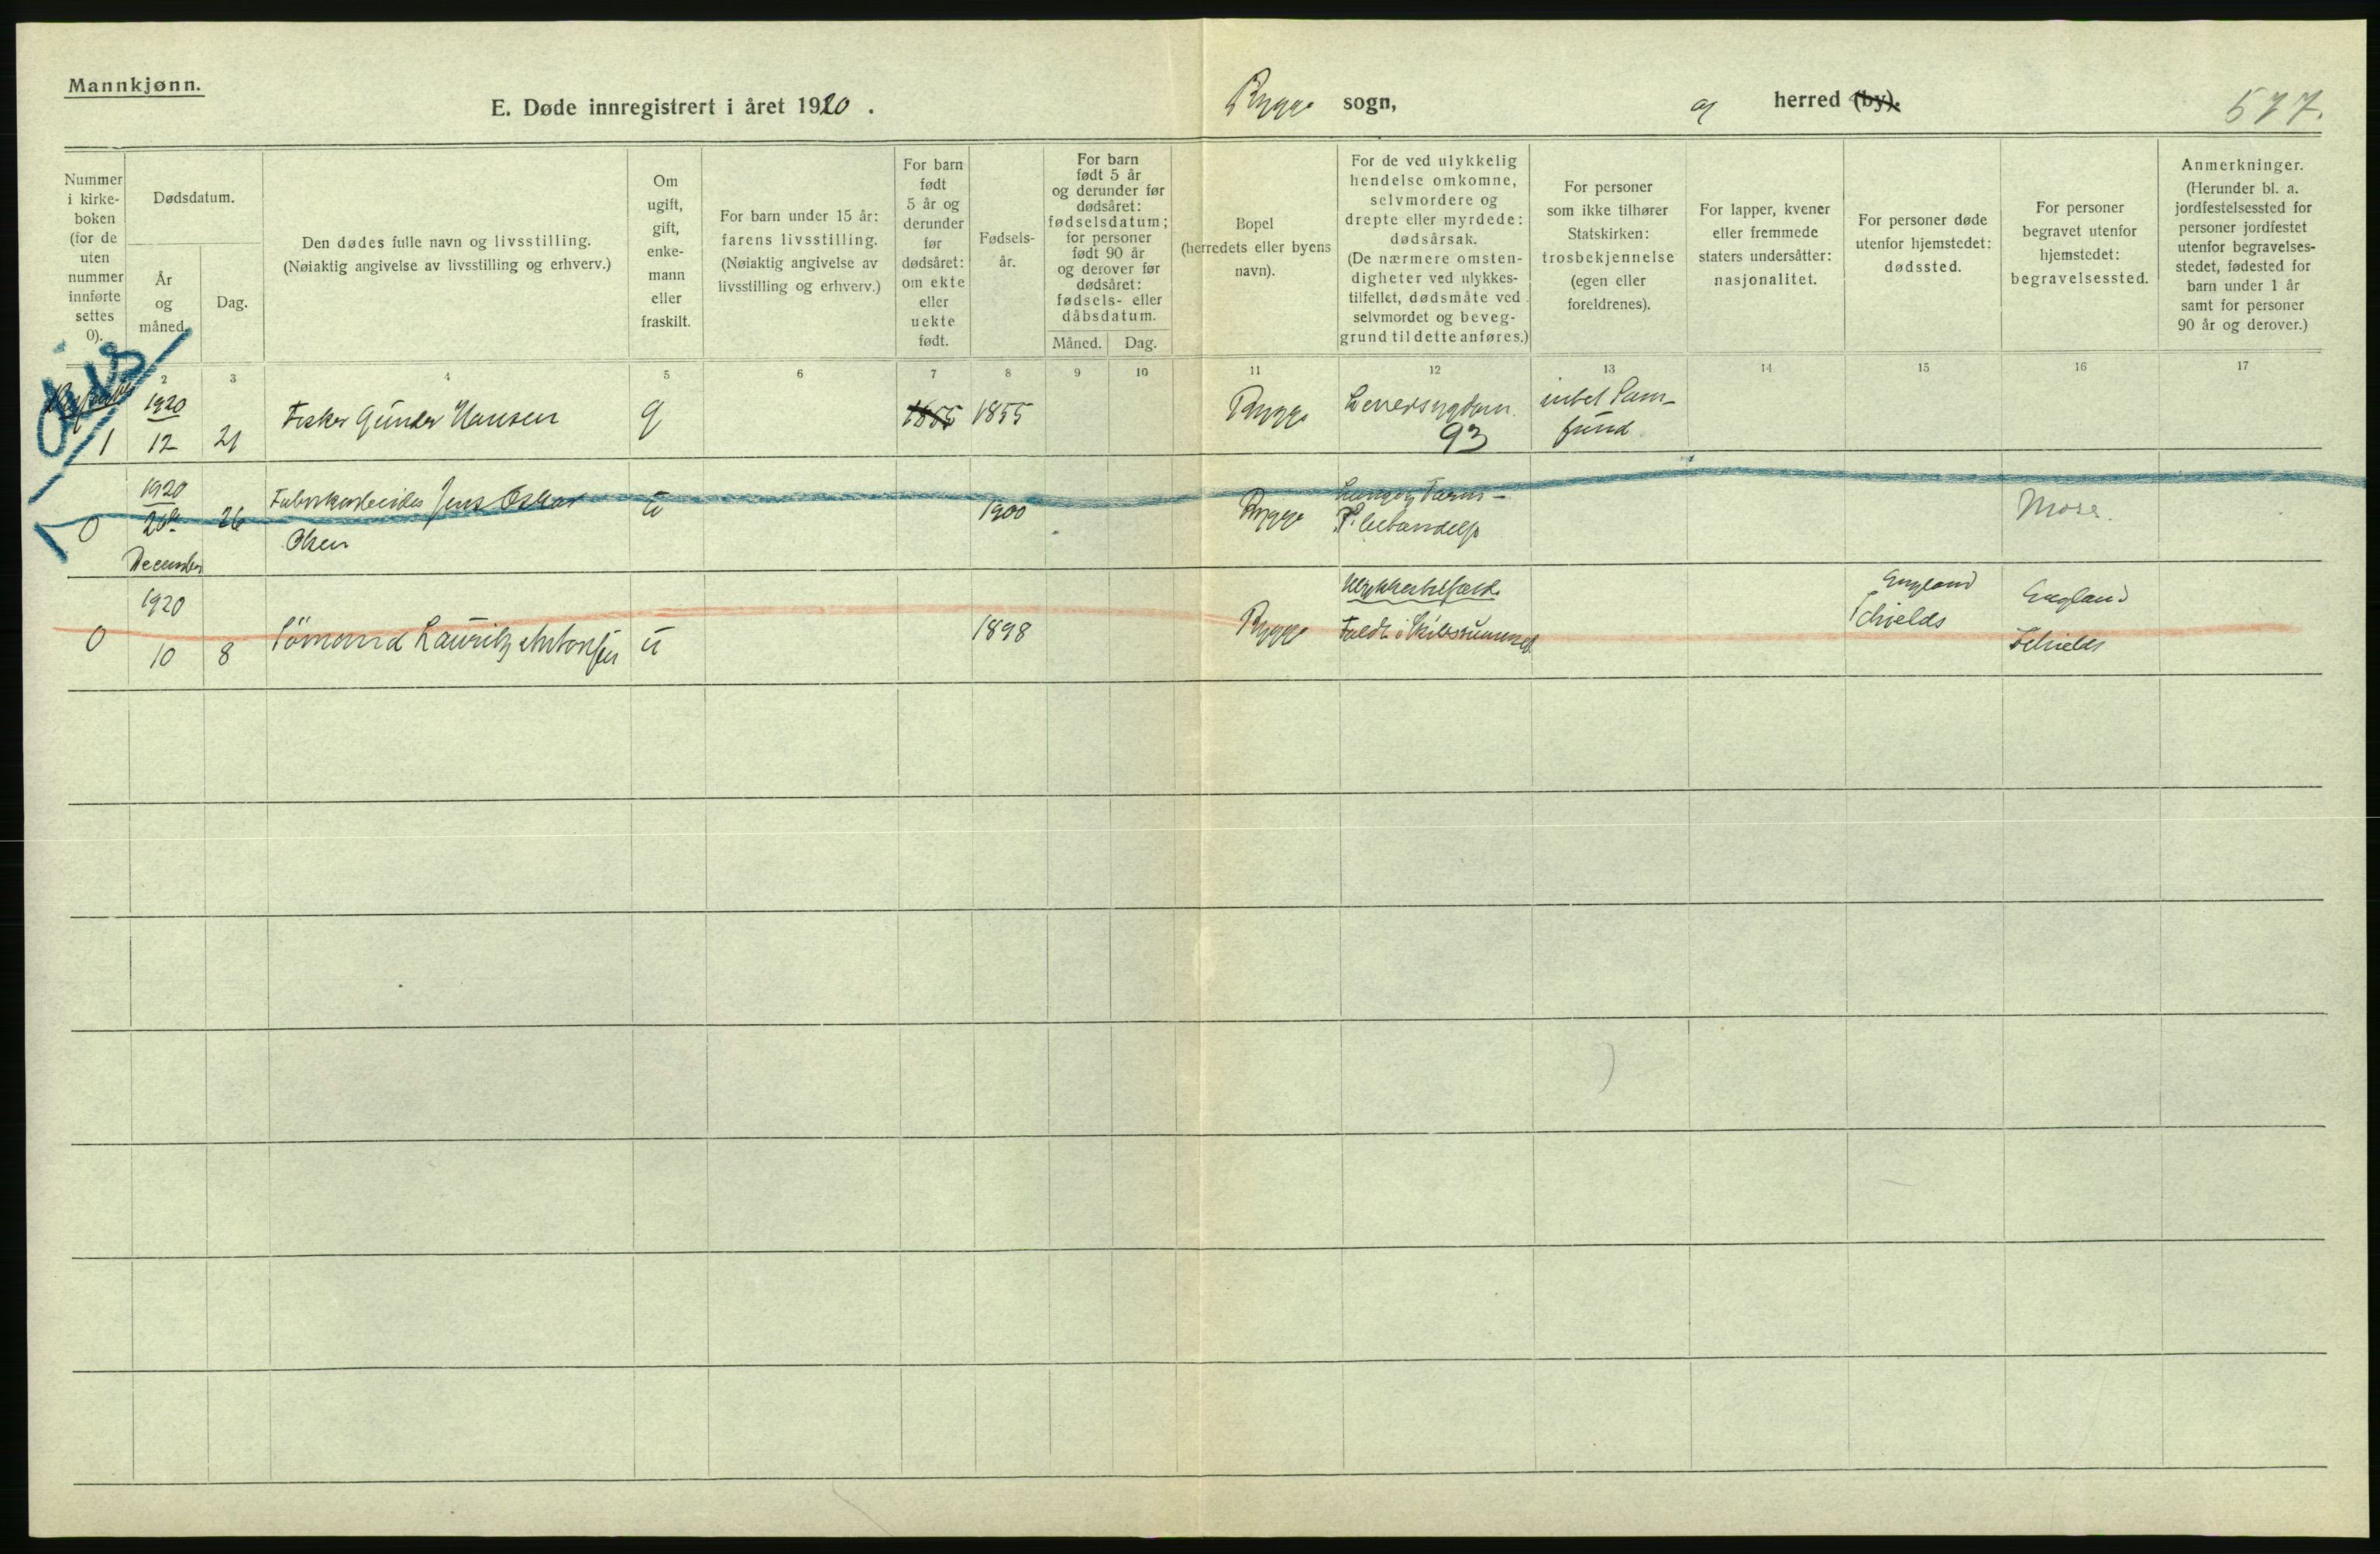 Mannkjønn.
E. Døde innregistrert i året 1920.
Rygge sogn,
og herred (by).
577.
Nummer
i kirke-
boken
(for de
uten
nummer
innførte
settes
0).
Dødsdatum.
År
og
måned.
Dag.
Den dødes fulle navn og livsstilling.
(Nøiaktig angivelse av livsstilling og erhverv.)
Om
ugift,
gift,
enke-
mann
eller
fraskilt.
For barn under 15 år:
farens livsstilling.
(Nøiaktig angivelse av
livsstilling og erhverv.)
For barn
født
5 år og
derunder
før
dødsåret:
om ekte
eller
uekte
født.
Fødsels-
år.
For barn
født 5 år
og derunder før
dødsåret:
fødselsdatum;
for personer
født 90 år
og derover før
dødsåret:
fødsels- eller
dåbsdatum.
Måned.
Dag.
Bopel
(herredets eller byens
navn).
For de ved ulykkelig
hendelse omkomne,
selvmordere og
drepte eller myrdede:
dødsårsak.
(De nærmere omsten-
digheter ved ulykkes-
tilfellet, dødsmåte ved
selvmordet og beveg-
grund til dette anføres.)
For personer
som ikke tilhører
Statskirken:
trosbekjennelse
(egen eller
foreldrenes).
For lapper, kvener
eller fremmede
staters undersåtter:
nasjonalitet.
For personer døde
utenfor hjemstedet:
dødssted.
For personer
begravet utenfor
hjemstedet:
begravelsessted.
Anmerkninger.
(Herunder bl. a.
jordfestelsessted for
personer jordfestet
utenfor begravelses-
stedet, fødested for
barn under 1 år
samt for personer
90 år og derover.)
2 3 4 5 6 7 8 9 10 11 12 13 14 15 16 17
1 1920
12 21 Fisker Gunder Hansen g 1855 1855 Rygge Leversygdom
93
Sam-
fund
0 1920
26 Fabrikarbeider Jens Oskar
Olsen u 1900 Rygge
Moss.
December
0 1920
10 8 Sömand Lauritz Antonsen u 1898 Rygge Ulykkestilfælde
Faldt i Skibsrummet
England
Schields
England
Schields